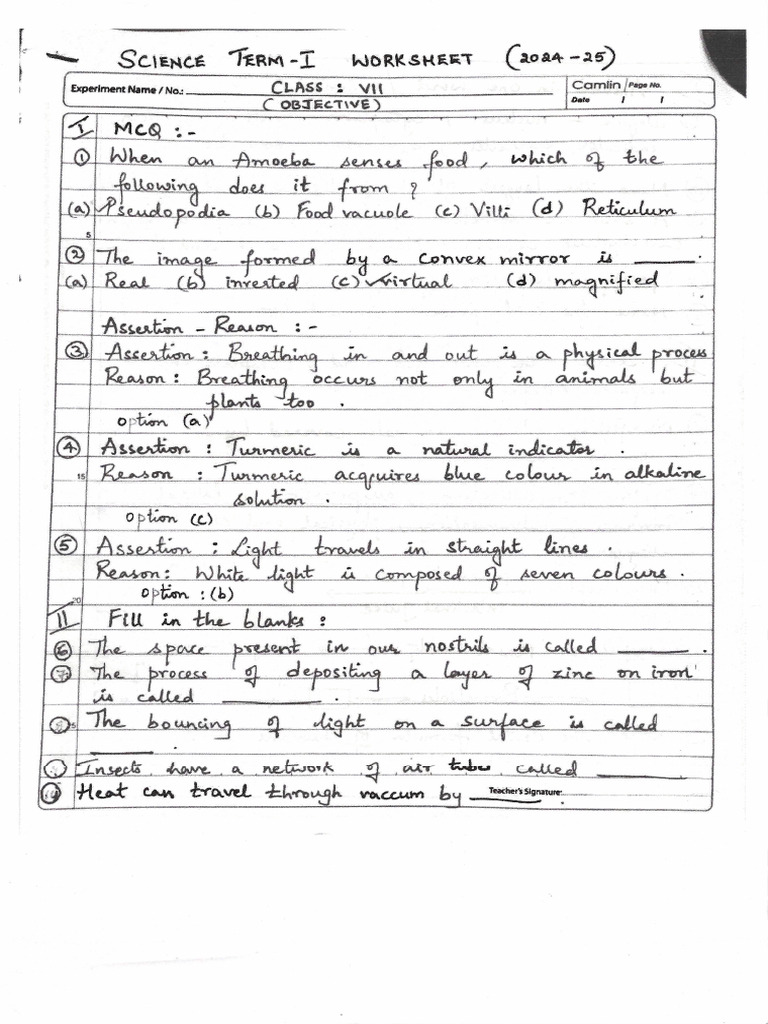 SCIENCE TERM-I WORKSHEET (2024-25)
Experiment Name / No.: CLASS : VII
Camlin Page No.
(OBJECTIVE)
Date / /
I MCQ :-
① When an Amoeba senses food, which of the
following does it from ?
(a) ✓Pseudopodia (b) Food vacuole (c) Villi (d) Reticulum
5
② The image formed by a convex mirror is ______.
(a) Real (b) inverted (c) ✓virtual (d) magnified
Assertion - Reason :-
③ Assertion : Breathing in and out is a physical process
Reason : Breathing occurs not only in animals but
plants too .
option (a)
④ Assertion : Turmeric is a natural indicator .
15 Reason : Turmeric acquires blue colour in alkaline
solution .
option (c)
⑤ Assertion : Light travels in straight lines .
Reason: White light is composed of seven colours .
option : (b)
20
II Fill in the blanks :
⑥ The space present in our nostrils is called ______ .
⑦ The process of depositing a layer of zinc on iron
is called ______ .
The bouncing of light on a surface is called
______ .
Insects have a network of air tube called ______
Heat can travel through vaccum by ______
Teacher's Signature: